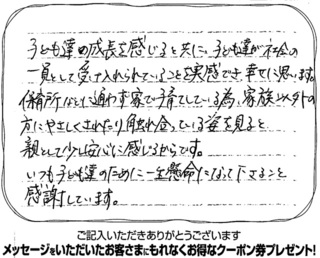 子ども達の成長を感じると共に、子ども達が社会の
一員として受け入れられていることを実感でき幸せに思います。
保育所などに通わず家で子育てしている為、家族以外の
方にやさしくされたり触れ合っている姿を見ると
親として少し安心に感じるからです。
いつも子ども達のために一生懸命になって下さること
感謝しています。
ご記入いただきありがとうございます
メッセージをいただいたお客さまにもれなくお得なクーポン券プレゼント!